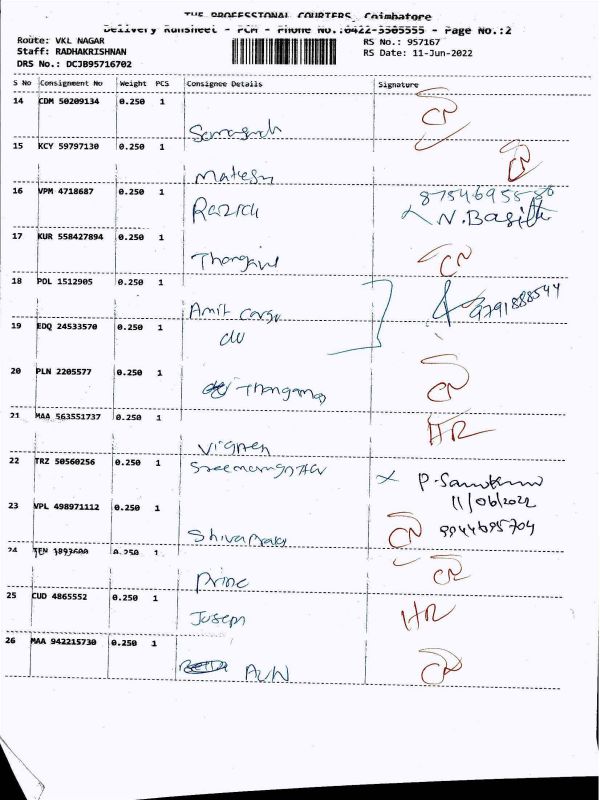 THE PROFESSIONAL COURIERS, Coimbatore
Delivery Runsheet - PCM - Phone No.:0422-3505555 - Page No.:2
Route: VKL NAGAR
RS No.: 957167
Staff: RADHAKRISHNAN
RS Date: 11-Jun-2022
DRS No.: DCJB95716702
S No Consignment No Weight PCS Consignee Details Signature
14 CDM 50209134 0.250 1
CN
15 KCY 59797130 0.250 1
Mahesh CN
16 VPM 4718687 0.250 1
Razick N. Basith
17 KUR 558427894 0.250 1
CN
18 POL 1512905 0.250 1
Amit cargo 9791888544
19 EDQ 24533570 0.250 1
do
20 PLN 2205577 0.250 1
CN
21 MAA 563551737 0.250 1 HR
Vignesh
22 TRZ 50560256 0.250 1
11/06/2022
23 VPL 498971112 0.250 1
CN 9944695704
24 TEN 1893600 0.250 1
Prine CN
25 CUD 4865552 0.250 1
Joseph HR
26 MAA 942215730 0.250 1
CN